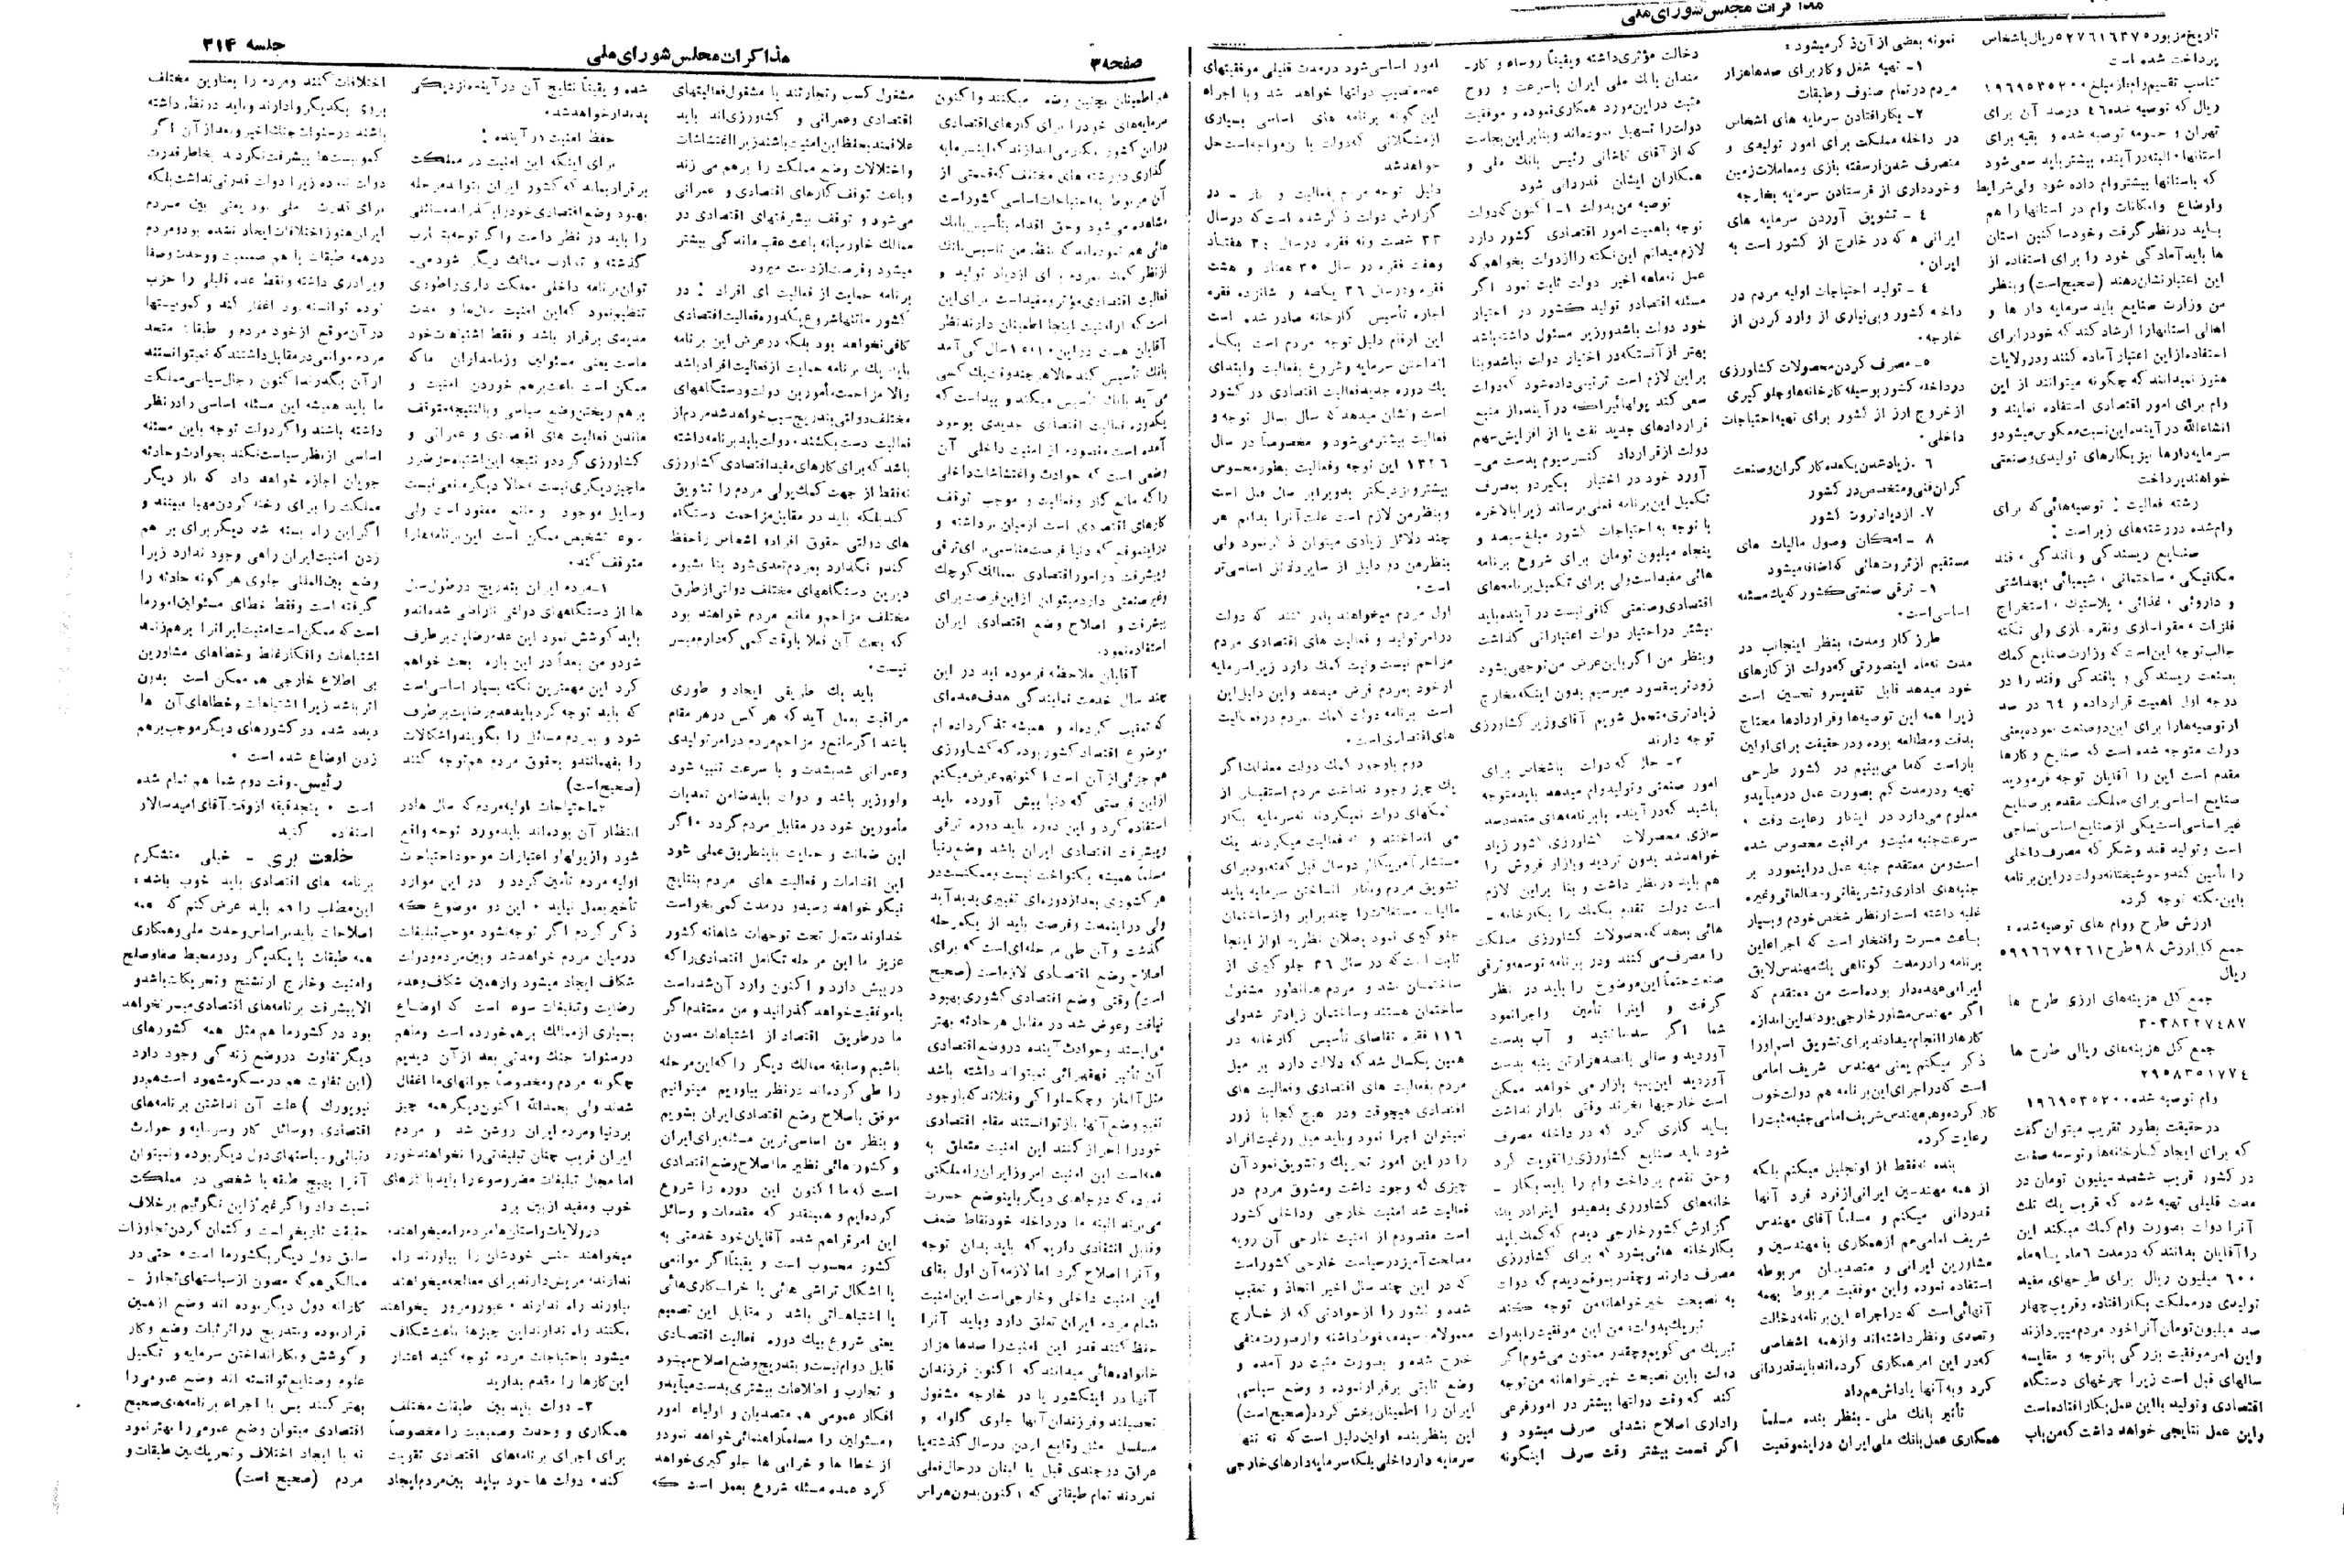 مذاکرات مجلس شورای ملی
تاریخ مزبور ۵۲۷۶۱۶۳۷۵ ریال باشخاص
پرداخت شده است
تناسب تقسیم وام از مبلغ ۱۹۶۹۵۳۵۲۰۰
ریال که توصیه شده ۴۶ درصد آن برای
تهران و حومه توصیه شده و بقیه برای
استانها البته در آینده بیشتر باید سعی شود
که باستانها بیشتر وام داده شود ولی شرایط
و اوضاع و امکانات وام در استانها را هم
باید در نظر گرفت و خود ساکنین استان
ها باید آمادگی خود را برای استفاده از
این اعتبار نشان دهند (صحیح است) و بنظر
من وزارت صنایع باید سرمایه دار ها و
اهالی استانها را ارشاد کند که خود را برای
استفاده از این اعتبار آماده کنند و در ولایات
هنوز نمیدانند که چگونه میتوانند از این
وام برای امور اقتصادی استفاده نمایند و
انشاءالله در آینده این نسبت معکوس میشود و
سرمایه دارها نیز بکارهای تولیدی و صنعتی
خواهند پرداخت
رشته فعالیت : توصیه هائی که برای
وام شده در رشته های زیر است :
صنایع ریسندگی و بافندگی ، قند
مکانیکی ، ساختمانی ، شیمیائی ، بهداشتی
و داروئی ، غذائی ، پلاستیک ، استخراج
جالب توجه این است که وزارت صنایع کمک
بصنعت ریسندگی و بافندگی و قند را در
درجه اول اهمیت قرار داده و ۶۴ در صد
از توصیه ها را برای این دو صنعت نموده یعنی
دولت متوجه شده است که صنایع و کارها
مقدم است این را آقایان توجه فرمودید
صنایع اساسی برای مملکت مقدم بر صنایع
غیر اساسی است یکی از صنایع اساسی نساجی
است و تولید قند و شکر که مصرف داخلی
را تأمین کند و خوشبختانه دولت در این برنامه
باین نکته توجه کرده
ارزش طرح و وام های توصیه شده :
جمع کل ارزش ۹۸ طرح ۵۹۹۶۶۷۹۲۶۱
ریال
جمع کل هزینه های ارزی طرح ها
۳۰۳۸۲۲۷۴۸۷
جمع کل هزینه های ریالی طرح ها
۲۹۵۸۳۵۱۷۷۴
وام توصیه شده ۱۹۶۹۵۳۵۲۰۰
در حقیقت بطور تقریب میتوان گفت
که برای ایجاد کارخانه ها و توسعه صنعت
در کشور قریب ششصد میلیون تومان در
مدت قلیلی تهیه شده که قریب یک ثلث
آنرا دولت بصورت وام کمک میکند این
را آقایان بدانند که در مدت ۶ ماه یا ۹ ماه
۶۰۰ میلیون ریال برای طرحهای مفید
تولیدی در مملکت بکار افتاده و قریب چهار
صد میلیون تومان آنرا خود مردم میپردازند
و این امر موفقیت بزرگی با توجه و مقایسه
سالهای قبل است زیرا چرخهای دستگاه
اقتصادی و تولید با این عمل بکار افتاده است
و این عمل نتایجی خواهد داشت که من باب
نمونه بعضی از آن ذکر میشود :
۱- تهیه شغل و کار برای صدها هزار
مردم در تمام صنوف و طبقات
۲- بکار افتادن سرمایه های اشخاص
در داخله مملکت برای امور تولیدی و
منصرف شدن از سفته بازی و معاملات زمین
و خودداری از فرستادن سرمایه بخارجه
۴ - تشویق آوردن سرمایه های
ایرانی ها که در خارج از کشور است به
ایران .
۴ - تولید احتیاجات اولیه مردم در
داخله کشور و بی نیازی از وارد کردن از
خارجه .
۵- مصرف کردن محصولات کشاورزی
در داخله کشور بوسیله کارخانه ها و جلوگیری
از خروج ارز از کشور برای تهیه احتیاجات
داخلی .
۶ - زیاد شدن یکعده کارگران و صنعت
گران فنی و متخصص در کشور
۷- ازدیاد ثروت کشور
۸ - امکان وصول مالیات های
مستقیم از ثروت هائی که اضافه میشود
۹- ترقی صنعتی کشور که یک مسئله
اساسی است .
طرز کار و مدت : بنظر اینجانب در
مدت نه ماه اینصورتی که دولت از کارهای
خود میدهد قابل تقدیس و تحسین است
زیرا همه این توصیه ها و قراردادها محتاج
بدقت و مطالعه بوده و در حقیقت برای اولین
بار است که ما می بینیم در کشور طرحی
تهیه و در مدت کم بصورت عمل درمیآید و
معلوم میدارد در اینکار رعایت دقت ،
سرعت جنبه مثبت و مراقبت مخصوص شده
است و من معتقدم جنبه عمل در اینمورد بر
جنبه های اداری و تشریفاتی و مطالعاتی و غیره
غلبه داشته است از نظر شخص خودم و بسیار
باعث مسرت و افتخار است که اجراء این
برنامه را در مدت کوتاهی یک مهندس لایق
ایرانی عهده دار بوده است من معتقدم که
اگر مهندس مشاور خارجی بودند این اندازه
کارها را انجام میدادند برای تشویق اسم او را
ذکر میکنم یعنی مهندس شریف امامی
است که در اجرای این برنامه هم دولت خوب
کار کرده و هم مهندس شریف امامی جنبه مثبت را
رعایت کرده
بنده نه فقط از او تجلیل میکنم بلکه
از همه مهندسین ایرانی از فرد فرد آنها
قدردانی میکنم و مسلماً آقای مهندس
شریف امامی هم از همکاری با مهندسین و
مشاورین ایرانی و متصدیان مربوطه
استفاده نموده و این موفقیت مربوط بهمه
آنهائی است که در اجراء این برنامه دخالت
و تصدی و نظر داشته اند و از همه اشخاصی
که در این امر همکاری کرده اند باید قدردانی
کرد و به آنها پاداش هم داد
تأثیر بانک ملی - بنظر بنده مسلماً
همکاری عمل بانک ملی ایران در این موفقیت
دخالت مؤثری داشته و یقیناً رؤساء و کار-
مندان بانک ملی ایران با سرعت و روح
مثبت در این مورد همکاری نموده و موفقیت
دولت را تسهیل نموده اند و بنابراین بجاست
که از آقای کاشانی رئیس بانک ملی و
همکاران ایشان قدردانی شود
توصیه من بدولت ۱- اکنون که دولت
توجه باهمیت امور اقتصادی کشور دارد
لازم میدانم این نکته را از دولت بخواهم که
عمل نه ماهه اخیر دولت ثابت نمود اگر
مسئله اقتصاد و تولید کشور در اختیار
خود دولت باشد و وزیر مسئول داشته باشد
بهتر از آنستکه در اختیار دولت نباشد و بنا
براین لازم است ترتیبی داده شود که دولت
سعی کند پولهائیرا که در آینده از منبع
قراردادهای جدید نفت یا از افزایش سهم
دولت از قرارداد کنسرسیوم بدست می-
آورد خود در اختیار بگیرد و بمصرف
تکمیل این برنامه فعلی برساند زیرا بالاخره
با توجه به احتیاجات کشور مبلغ سیصد و
پنجاه میلیون تومان برای شروع برنامه
هائی مفید است ولی برای تکمیل برنامه های
اقتصادی و صنعتی کافی نیست در آینده باید
بیشتر در اختیار دولت اعتباراتی گذاشت
و بنظر من اگر باین عرض من توجهی بشود
زودتر بمقصود میرسیم بدون اینکه مخارج
زیادتری متحمل شویم آقای وزیر کشاورزی
توجه دارند
۲- حال که دولت باشخاص برای
امور صنعتی و تولید وام میدهد باید متوجه
باشید که در آینده با برنامه های متعدد سد
سازی محصولات کشاورزی کشور زیاد
خواهد شد بدون تردید و بازار فروش را
هم باید در نظر داشت و بنا براین لازم
است دولت تقدم بکمک را بکارخانه -
هائی بدهد که محصولات کشاورزی مملکت
را مصرف می کنند و در برنامه توسعه و ترقی
صنعت حتماً این موضوع را باید در نظر
گرفت و اینرا تأمین و اجرا نمود
شما اگر سد ساختید و آب بدست
آوردید و سالی پانصد هزار تن پنبه بدست
آوردید این پنبه بازار می خواهد ممکن
است خارجیها بخرند وقتی بازار نداشت
باید کاری کرد که در داخله مصرف
شود باید صنایع کشاورزی را تقویت کرد
و حق تقدم پرداخت وام را باید بکار -
خانه های کشاورزی بدهید و اینرا در یک
گزارش کشور خارجی دیدم که کمک باید
بکارخانه هائی بشود که برای کشاورزی
مصرف دارند و چقدر بموقع دیدم که دولت
به نصیحت خیرخواهانه من توجه کند
تبریک بدولت : من این موفقیت را بدولت
تبریک می گویم و چقدر ممنون می شوم اگر
دولت باین نصیحت خیرخواهانه من توجه
کند که وقت دولتها بیشتر در امور فرعی
و اداری اصلاح نشدنی صرف میشود و
اگر قسمت بیشتر وقت صرف اینگونه
امور اساسی شود در مدت قلیلی موفقیتهای
عمده نصیب دولتها خواهد شد و با اجراء
این گونه برنامه های اساسی بسیاری
از مشکلاتی که دولت با آن مواجه است حل
خواهد شد
دلیل توجه مردم بفعالیت و کار - در
گزارش دولت ذکر شده است که در سال
۳۳ شصت و نه فقره در سال ۳۴ هفتاد
و هفت فقره در سال ۳۵ هفتاد و هشت
فقره و در سال ۳۶ یکصد و شانزده فقره
اجازه تأسیس کارخانه صادر شده است
این ارقام دلیل توجه مردم است بکار
انداختن سرمایه و شروع بفعالیت و ابتدای
یک دوره جدید فعالیت اقتصادی در کشور
است و نشان میدهد که سال بسال توجه و
فعالیت بیشتر می شود و مخصوصاً در سال
۱۳۳۶ این توجه و فعالیت بطور محسوس
بیشتر و نزدیکتر بدو برابر سال قبل است
و بنظر من لازم است علت آنرا بدانیم هر
چند دلائل زیادی میتوان ذکر نمود ولی
بنظر من دو دلیل از سایر دلائل اساسی تر
است .
اول مردم میخواهند باور کنند که دولت
در امر تولید و فعالیت های اقتصادی مردم
مزاحم نیست و نیت کمک دارد زیرا سرمایه
از خود بمردم قرض میدهد و این دلیل این
است برنامه دولت کمک بمردم در فعالیت
های اقتصادی است .
دوم با وجود کمک دولت معذلک اگر
یک چیز وجود نداشت مردم استقبال از
کمکهای دولت نمیکردند نه سرمایه بکار
می انداختند و نه فعالیت میکردند یک
مستشار آمریکائی دو سال قبل گفته بود برای
تشویق مردم و بکار انداختن سرمایه باید
مالیات مستغلات را چند برابر و از ساختمان
جلوگیری نمود بطلان نظریه او از اینجا
ثابت است که در سال ۳۶ جلوگیری از
ساختمان نشد و مردم همانطور مشغول
ساختمان هستند و ساختمان زیادتر شد ولی
۱۱۶ فقره تقاضای تأسیس کارخانه در
همین یکسال شد که دلالت دارد بر میل
مردم بفعالیت های اقتصادی و فعالیت های
اقتصادی هیچوقت و در هیچ کجا با زور
نمیتوان اجرا نمود و باید میل و رغبت افراد
را در این امور تحریک و تشویق نمود آن
چیزی که وجود داشت و مشوق مردم در
فعالیت شد امنیت خارجی و داخلی کشور
است مقصودم از امنیت خارجی آن رویه
مسالمت آمیز در سیاست خارجی کشور است
که در این چند سال اخیر اتخاذ و تعقیب
شده و کشور را از حوادثی که از خارج
معمولا میرسید محفوظ داشته و از صورت منفی
خارج شده و بصورت مثبت در آمده و
وضع ثابتی برقرار نموده و وضع سیاسی
ایران را اطمینان بخش کرده (صحیح است)
این بنظر بنده اولین دلیل است که نه تنها
سرمایه دار داخلی بلکه سرمایه دارهای خارجی
صفحه ۳۸
مذاکرات مجلس شورای ملی
جلسه ۳۱۴
هم اطمینان بچنین وضع میکنند و اکنون
سرمایه های خود را برای کارهای اقتصادی
در این کشور بکار می اندازند که این سرمایه
گذاری در رشته های مختلف که قسمتی از
آن مربوط به احتیاجات اساسی کشور است
مشاهده می شود و حتی اقدام بتأسیس بانک
هائی هم نموده اند که بنظر من تأسیس بانک
از نظر کمک بمردم برای ازدیاد تولید و
فعالیت اقتصادی مؤثر و مفید است برای این
است که از امنیت اینجا اطمینان دارند نظر
آقایان هست در این ۱۰، ۱۵ سال کی آمد
بانک تأسیس کند حالا هر چند وقت یک کسی
می آید بانک تأسیس میکند و پیداست که
یکدوره فعالیت اقتصادی جدیدی بوجود
آمده است مقصودم از امنیت داخلی آن
وضعی است که حوادث و اغتشاشات داخلی
را که مانع کار و فعالیت و موجب توقف
کارهای اقتصادی است از میان برداشته و
در این موقع که دنیا فرصت مناسبی برای ترقی
و پیشرفت در امور اقتصادی بممالک کوچک
و غیر صنعتی دارد میتوان از این فرصت برای
پیشرفت و اصلاح وضع اقتصادی ایران
استفاده نمود.
آقایان ملاحظه فرموده اید در این
چند سال خدمت نمایندگی هدف عمده ای
که تعقیب کرده ام و همیشه تذکر داده ام
موضوع اقتصاد کشور بوده که کشاورزی
هم جزئی از آن است اکنون هم عرض میکنم
از این فرصتی که دنیا پیش آورده باید
استفاده کرد و این دوره باید دوره ترقی
و پیشرفت اقتصادی ایران باشد وضع دنیا
مسلماً همیشه یکنواخت نیست و ممکنست در
هر کشوری بعد از دوره ای تغییری پدید آید
ولی در اینمدت و فرصت باید از یکمرحله
گذشت و آن طی مرحله ای است که برای
اصلاح وضع اقتصادی لازم است (صحیح
است) وقتی وضع اقتصادی کشوری بهبود
یافت و عوض شد در مقابل هر حادثه بهتر
می ایستد و حوادث آینده در وضع اقتصادی
آن تأثیر قهقهرائی نمیتواند داشته باشد
مثل آلمان و چکسلواکی و فنلاند که باوجود
تغییر وضع آنها باز توانستند مقام اقتصادی
خود را احراز کنند این امنیت متعلق به
همه است این امنیت امروز ایران را مملکتی
نموده که در جاهای دیگر باینوضع حسرت
می برند البته ما در داخله خود نقاط ضعف
و قابل انتقادی داریم که باید بدان توجه
و آنرا اصلاح کرد اما لازمه آن اول بقای
این امنیت داخلی و خارجی است این امنیت
بتمام مردم ایران تعلق دارد و باید آنرا
حفظ کنند قدر این امنیت را صدها هزار
خانواده هائی میدانند که اکنون فرزندان
آنها در اینکشور یا در خارجه مشغول
تحصیلند و فرزندان آنها جلوی گلوله و
مسلسل مثل وقایع اردن در سال گذشته یا
عراق در چندی قبل یا لبنان در حال فعلی
نمردند تمام طبقاتی که اکنون بدون هراس
مشغول کسب و تجارتند یا مشغول فعالیتهای
اقتصادی و عمرانی و کشاورزی اند باید
علاقمند بحفظ این امنیت باشند زیرا اغتشاشات
و اختلالات وضع مملکت را برهم می زند
و باعث توقف کارهای اقتصادی و عمرانی
می شود و توقف پیشرفتهای اقتصادی در
ممالک خاورمیانه باعث عقب ماندگی بیشتر
میشود و فرصت از دست میرود
برنامه حمایت از فعالیت ای افراد : در
کشور ما تنها شروع یکدوره فعالیت اقتصادی
کافی نخواهد بود بلکه در عرض این برنامه
باید یک برنامه حمایت از فعالیت افراد باشد
والا مزاحمت مأمورین دولت و دستگاههای
مختلف دولتی بتدریج سبب خواهد شد مردم از
فعالیت دست بکشند . دولت باید برنامه داشته
باشد که برای کارهای مفید اقتصادی کشاورزی
نه فقط از جهت کمک پولی مردم را تشویق
کند بلکه باید در مقابل مزاحمت دستگاه
های دولتی حقوق افراد و اشخاص را حفظ
کند و نگذارد بمردم تعدی شود بنا بشیوه
دیرین دستگاههای مختلف دولتی از طرق
مختلف مزاحم و مانع مردم خواهند بود
که بحث آن فعلا با وقت کمی که دارم میسر
نیست .
باید یک طریقی ایجاد و طوری
مراقبت بعمل آید که هر کس در هر مقام
باشد اگر مانع و مزاحم مردم در امر تولیدی
و عمرانی شد بشدت و با سرعت تنبیه شود
ولو وزیر باشد و دولت باید ضامن تعدیات
مأمورین خود در مقابل مردم گردد . اگر
این ضمانت و حمایت باینطریق عملی شود
این اقدامات و فعالیت های مردم بنتایج
نیکو خواهد رسید و در مدت کمی بخواست
خداوند متعال تحت توجهات شاهانه کشور
عزیز ما این مرحله تکامل اقتصادی را که
در پیش دارد و اکنون وارد آن شده است
با موفقیت خواهد گذرانید و من معتقدم اگر
ما در طریق اقتصاد از اشتباهات مصون
باشیم و سابقه ممالک دیگر را که این مرحله
را طی کرده اند در نظر بیاوریم میتوانیم
موفق باصلاح وضع اقتصادی ایران بشویم
و بنظر من اساسی ترین مسئله برای ایران
و کشور هائی نظیر ما اصلاح وضع اقتصادی
است که ما اکنون این دوره را شروع
کرده ایم و همینقدر که مقدمات و وسائل
این امر فراهم شده آقایان خود خدمتی به
کشور محسوب است و یقیناً اگر موانعی
با اشکال تراشی هائی یا خرابکاری هائی
یا اشتباهاتی باشد در مقابل این تصمیم
یعنی شروع بیک دوره فعالیت اقتصادی
قابل دوام نیست و بتدریج وضع اصلاح میشود
و تجارب و اطلاعات بیشتری بدست میآید و
افکار عمومی هم متصدیان و اولیاء امور
و مسئولین را مسلماً راهنمائی خواهد نمود و
از خطا ها و خرابی ها جلوگیری خواهد
کرد عمده مسئله شروع بعمل است که
شده و یقیناً نتایج آن در آینده نزدیکی
پدیدار خواهد شد .
حفظ امنیت در آینده :
برای اینکه این امنیت در مملکت
برقرار بماند که کشور ایران بتواند مرحله
بهبود وضع اقتصادی خود را بگذراند مسائلی
را باید در نظر داشت و اگر توجه بتجارب
گذشته و تجارب ممالک دیگر شود می-
توان برنامه داخلی مملکت داری را طوری
تنظیم نمود که این امنیت سال ها و مدت
مدیدی برقرار باشد و فقط اشتباهات خود
ماست یعنی مسئولین و زمامداران ما که
ممکن است باعث برهم خوردن امنیت و
برهم ریختن وضع سیاسی و بالنتیجه متوقف
ماندن فعالیت های اقتصادی و عمرانی و
کشاورزی گردد و نتیجه این اشتباه جز ضرر
ما چیز دیگری نیست ، حالا دیگر مانعی نیست
وسایل موجود و مانع مفقود است ولی
سوء تشخیص ممکن است این برنامه ها را
متوقف کند .
۱- مردم ایران بتدریج در طول سال
ها از دستگاههای دولتی ناراضی شده اند و
باید کوشش نمود این عدم رضایت برطرف
شود و من بعداً در این باره بحث خواهم
کرد این مهمترین نکته بسیار اساسی است
که باید توجه کرد باید عدم رضایت برطرف
شود و بمردم مسائل را بگویند و اشکالات
را بفهمانند و بحقوق مردم هم توجه کنند
(صحیح است)
۲- احتیاجات اولیه مردم که سال ها در
انتظار آن بوده اند باید مورد توجه واقع
شود و از پولها و اعتبارات موجود احتیاجات
اولیه مردم تأمین گردد و در این موارد
تأخیر بعمل نیاید . این دو موضوع که
ذکر کردم اگر توجه نشود موجب تبلیغات
در میان مردم خواهد شد و بین مردم و دولت
شکاف ایجاد میشود و از همین شکاف و عدم
رضایت و تبلیغات سوء است که اوضاع
بسیاری از ممالک برهم خورده است و ما هم
در سنوات جنگ و مدتی بعد از آن دیدیم
چگونه مردم و مخصوصاً جوانهای ما اغفال
شدند ولی بحمدالله اکنون دیگر همه چیز
بر دنیا و مردم ایران روشن شد و مردم
ایران فریب چنان تبلیغاتی را نخواهند خورد
اما مجال تبلیغات مضر و سوء را باید با کارهای
خوب و مفید از بین برد
در ولایات و استان ها مردم راه میخواهند،
میخواهند جنس خودشان را بیاورند راه
ندارند، مریض دارند برای معالجه میخواهند
بیاورند راه ندارند ، عبور و مرور بخواهند
بکنند راه ندارند این چیزها باعث شکاف
میشود باحتیاجات مردم توجه کنید اعتبار
این کارها را مقدم بدارید
۳- دولت باید بین طبقات مختلف
همکاری و وحدت و صمیمیت را مخصوصاً
برای اجرای برنامه های اقتصادی تقویت
کند . دولت ها خود نباید بین مردم ایجاد
اختلافات کنند و مردم را بعناوین مختلف
بروی یکدیگر وادارند و باید در نظر داشته
باشند در سنوات جنگ اخیر و بعد از آن اگر
کمونیست ها پیشرفت نکردند بخاطر قدرت
دولت نبوده زیرا دولت قدرتی نداشت بلکه
برای قدرت ملی بود یعنی بین مردم
ایران هنوز اختلافات ایجاد نشده بود و مردم
در همه طبقات با هم صمیمیت و وحدت و صفا
و برادری داشته و فقط عده قلیلی را حزب
توده توانسته بود اغفال کند و کمونیستها
در آن موقع از خود مردم و طبقات متحد
مردم موانعی در مقابل داشتند که نمیتوانستند
از آن بگذرند اکنون رجال سیاسی مملکت
ما باید همیشه این مسئله اساسی را در نظر
داشته باشند و اگر دولت توجه باین مسئله
اساسی از نظر سیاست نکند بحوادث و حادثه
جویان اجازه خواهد داد که بار دیگر
مملکت را برای رخنه کردن مهیا ببینند و
اگر این راه بسته شد دیگر برای بر هم
زدن امنیت ایران راهی وجود ندارد زیرا
وضع بین المللی جلوی هر گونه حادثه را
گرفته است و فقط خطای مسئولین امور ما
است که ممکن است امنیت ایرانرا برهم زند
اشتباهات و افکار غلط و خطاهای مشاورین
بی اطلاع خارجی هم ممکن است بدون
اثر باشد زیرا اشتباهات و خطاهای آن ها
دیده شده در کشورهای دیگر موجب برهم
زدن اوضاع شده است .
رئیس - وقت دوم شما هم تمام شده
است . پنجدقیقه از وقت آقای امید سالار
استفاده کنید
خلعت بری - خیلی متشکرم
برنامه های اقتصادی باید خوب باشد :
این مطلب را هم باید عرض کنم که همه
اصلاحات باید بر اساس وحدت ملی و همکاری
همه طبقات با یکدیگر و در محیط صفا و صلح
و امنیت و خارج از تشنج و تحریکات باشد و
الا پیشرفت برنامه های اقتصادی میسر نخواهد
بود در کشور ما هم مثل همه کشورهای
دیگر تفاوت در وضع زندگی وجود دارد
(این تفاوت هم در مسکو مشهود است هم در
نیویورک ) علت آن نداشتن برنامه های
اقتصادی و وسائل کار و سرمایه و حوادث
دنیائی و سیاستهای دول دیگر بوده و نمیتوان
آنرا بهیچ طبقه یا شخصی در مملکت
نسبت داد و اگر غیر از این بگوئیم برخلاف
حقیقت تاریخی است و کتمان کردن تجاوزات
سابق دول دیگر بکشور ما است . حتی در
ممالکی هم که مصون از سیاستهای تجاوز -
کارانه دول دیگر بوده اند وضع از همین
قرار بوده و بتدریج در اثر ثبات وضع و کار
و کوشش و بکار انداختن سرمایه و تکمیل
علوم و صنایع توانسته اند وضع عمومی را
بهتر کنند پس با اجراء برنامه های صحیح
اقتصادی میتوان وضع عمومی را بهتر نمود
نه با ایجاد اختلاف و تحریک بین طبقات و
مردم (صحیح است)